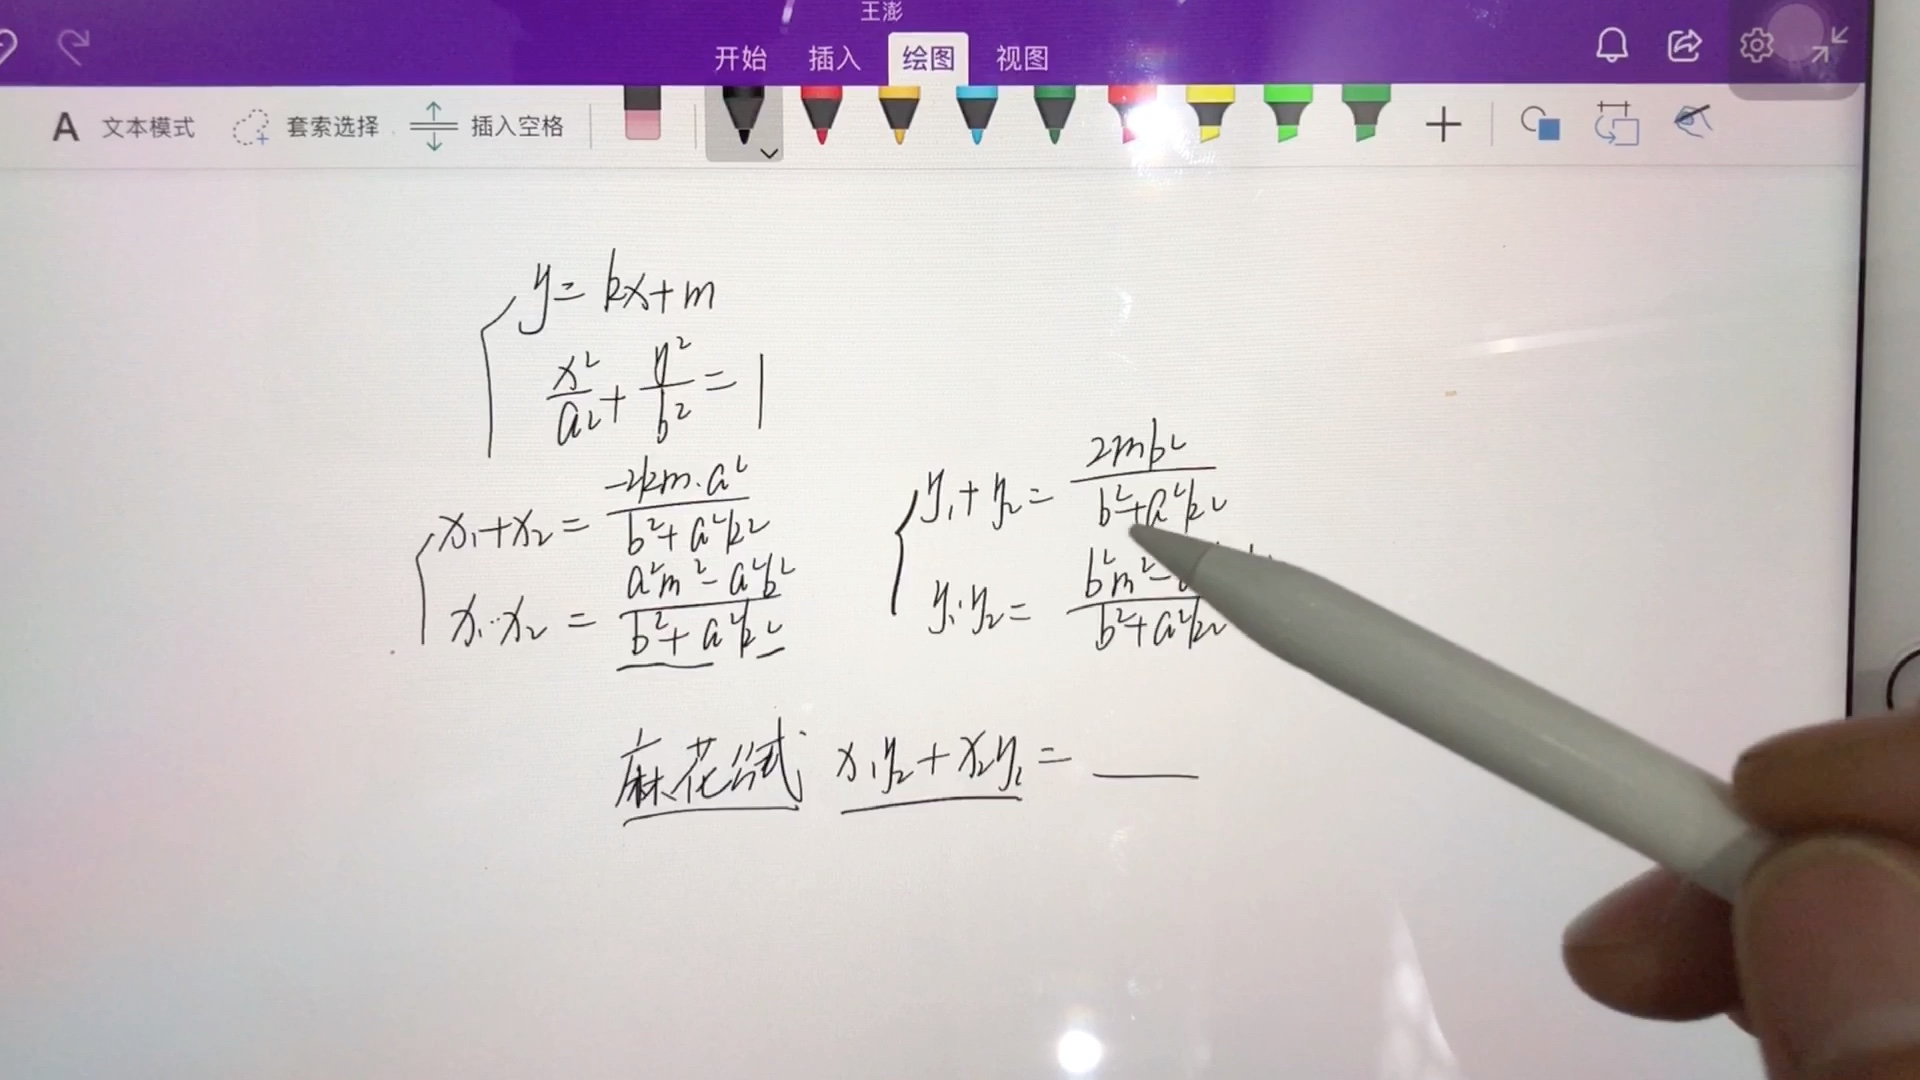 王澎
开始 插入 绘图 视图
A 文本模式 套索选择 插入空格
y = kx + m
x²/a² + y²/b² = 1
x₁ + x₂ = -2km·a² / b² + a²k²
x₁·x₂ = a²m² - a²b² / b² + a²k²
y₁ + y₂ = 2mb² / b² + a²k²
y₁·y₂ = b²m² - / b² + a²k²
麻花公式 x₁y₂ + x₂y₁ = ___